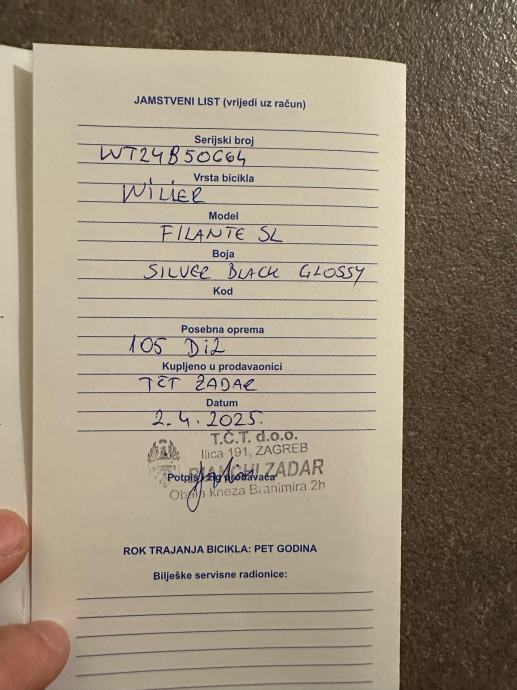 JAMSTVENI LIST (vrijedi uz račun)
Serijski broj
WT24B50G64
Vrsta bicikla
WILIER
Model
FILANTE SL
Boja
SILVER BLACK GLOSSY
Kod
Posebna oprema
105 Di2
Kupljeno u prodavaonici
TČT ZADAR
Datum
2.4.2025.
T.Č.T. d.o.o.
Ilica 191, ZAGREB
BIANCHI ZADAR
Potpis i žig prodavača
Obala kneza Branimira 2h
ROK TRAJANJA BICIKLA: PET GODINA
Bilješke servisne radionice: